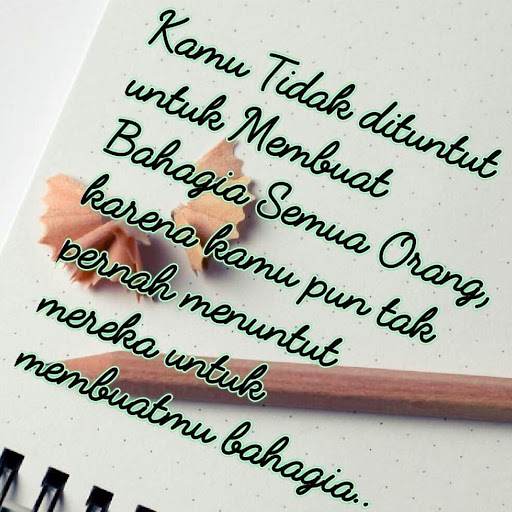 Kamu Tidak dituntut
untuk Membuat
Bahagia Semua Orang,
karena kamu pun tak
pernah menuntut
mereka untuk
membuatmu bahagia..